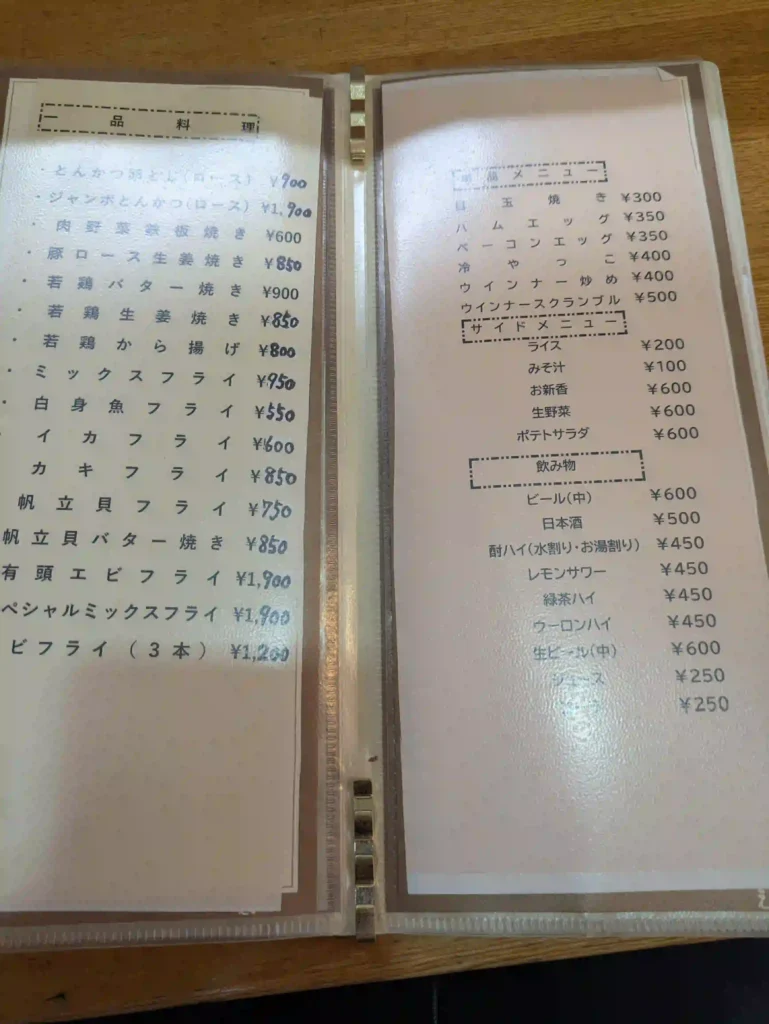 一品料理
・とんかつ卵とじ(ロース) ¥900
・ジャンボとんかつ(ロース) ¥1,900
・肉野菜鉄板焼き ¥600
・豚ロース生姜焼き ¥850
・若鶏バター焼き ¥900
・若鶏生姜焼き ¥850
・若鶏から揚げ ¥800
・ミックスフライ ¥950
・白身魚フライ ¥550
・イカフライ ¥600
カキフライ ¥850
帆立貝フライ ¥750
帆立貝バター焼き ¥850
有頭エビフライ ¥1,900
ペシャルミックスフライ ¥1,900
ビフライ(3本) ¥1,200
単品メニュー
目玉焼き ¥300
ハムエッグ ¥350
ベーコンエッグ ¥350
冷やっこ ¥400
ウインナー炒め ¥400
ウインナースクランブル ¥500
サイドメニュー
ライス ¥200
みそ汁 ¥100
お新香 ¥600
生野菜 ¥600
ポテトサラダ ¥600
飲み物
ビール(中) ¥600
日本酒 ¥500
酎ハイ(水割り・お湯割り) ¥450
レモンサワー ¥450
緑茶ハイ ¥450
ウーロンハイ ¥450
生ビール(中) ¥600
ジュース ¥250
¥250